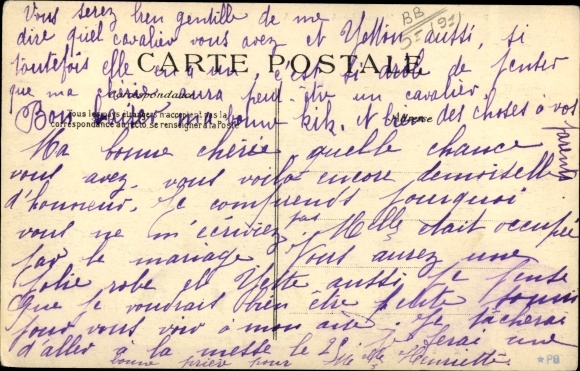 Vous serez bien gentille de me
dire quel cavalier vous avez et Yvonne aussi, si
toutefois elle en a un, c'est si drôle de penser
que ma chérie aura peut-être un cavalier
Bon baiser ma bonne kik. et bien des choses à vos
parents
BB
CARTE POSTALE
Correspondance
Tous les pays étrangers n'acceptent pas la
correspondance au recto, se renseigner à la Poste
Adresse
Ma bonne chérie quelle chance
vous avez, vous voilà encore demoiselle
d'honneur. Je comprends pourquoi
vous ne m'écriviez pas Melle était occupée
par le mariage. Vous aurez une
jolie robe et Yvette aussi. Je pense
que je voudrais bien être petite souris
pour vous voir à mon aise. Je tâcherai
d'aller à la messe le 2 je serai une
bonne prière pour Melle Henriette
*PB